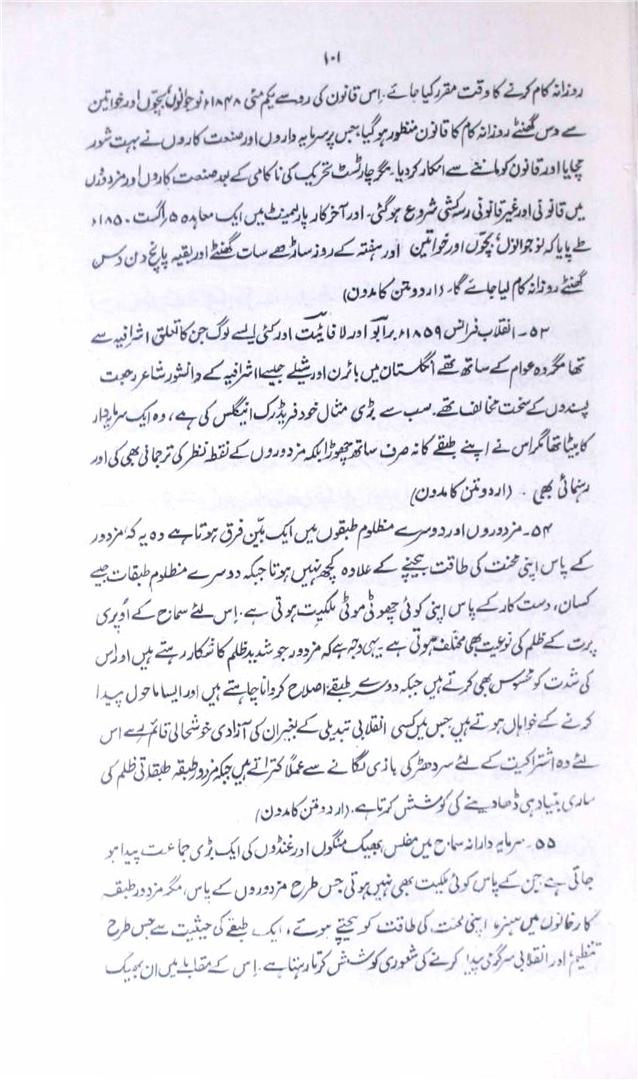 ۱۰۱
روزانہ کام کرنے کا وقت مقرر کیا جائے۔ اِس قانون کی رو سے یکم مئی ۱۸۴۸ء نوجوانوں، بچّوں اور خواتین
سے دس گھنٹے روزانہ کام کا قانون منظور ہوگیا، جس پر سرمایہ داروں اور صنعت کاروں نے بہت شور
مچایا اور قانون کو ماننے سے انکار کر دیا۔ مگر چارٹسٹ تحریک کی ناکامی کے بعد صنعت کاروں اور مزدوروں
میں قانونی اور غیر قانونی رسہ کشی شروع ہوگئی۔ اور آخر کار پارلیمنٹ میں ایک معاہدہ ۵ اگست ۱۸۵۰ء
طے پایا کہ نوجوانوں، بچّوں اور خواتین اور ہفتہ کے روز ساڑھے سات گھنٹے اور بقیہ پانچ دن دس
گھنٹے روزانہ کام لیا جائے گا۔ (اردو متن کا مدون)
۵۳۔ انقلاب فرانس ۱۸۵۹ء برابو اور لافائیت اور کئی ایسے لوگ جن کا تعلق اشرافیہ سے
تھا مگر وہ عوام کے ساتھ تھے انگلستان میں بائرن اور شیلے جیسے اشرافیہ کے دانشور شاعر رجعت
پسندوں کے سخت مخالف تھے۔ سب سے بڑی مثال خود فریڈرک اینگلس کی ہے، وہ ایک سرمایہ دار
کا بیٹا تھا مگر اس نے اپنے طبقے کا نہ صرف ساتھ چھوڑا بلکہ مزدوروں کے نقطہ نظر کی ترجمانی بھی کی اور
رہنمائی بھی۔ (اردو متن کا مدون)
۵۴۔ مزدوروں اور دوسرے مظلوم طبقوں میں ایک بیّن فرق ہوتا ہے وہ یہ کہ مزدور
کے پاس اپنی محنت کی طاقت بیچنے کے علاوہ کچھ نہیں ہوتا جبکہ دوسرے مظلوم طبقات جیسے
کسان، دست کار کے پاس اپنی کوئی چھوٹی موٹی ملکیت ہوتی ہے۔ اس لئے سماج کے اُوپری
پرت کے ظلم کی نوعیت بھی مختلف ہوتی ہے یہی وجہ ہے کہ مزدور جو شدید ظلم کا شکار رہتے ہیں اور اس
کی شدت کو محسوس بھی کرتے ہیں جبکہ دوسرے طبقے اصلاح کروانا چاہتے ہیں اور ایسا ماحول پیدا
کرنے کے خواہاں ہوتے ہیں جس میں کسی انقلابی تبدیلی کے بغیر ان کی آزادی خوشحالی قائم رہے اس
لئے وہ اشتراکیت کے لئے سر دھڑ کی بازی لگانے سے عملاً کتراتے ہیں جبکہ مزدور طبقہ طبقاتی ظلم کی
ساری بنیاد ہی ڈھا دینے کی کوشش کرتا ہے۔ (اردو متن کا مدون)
۵۵۔ سرمایہ دارانہ سماج میں مفلس بھیک منگوں اور غنڈوں کی ایک بڑی جماعت پیدا ہو
جاتی ہے جن کے پاس کوئی ملکیت بھی نہیں ہوتی جس طرح مزدوروں کے پاس، مگر مزدور طبقہ
کارخانوں میں اپنی محنت کی طاقت کو بیچتے ہوئے، ایک طبقے کی حیثیت سے جس طرح
تنظیم اور انقلابی سرگرمی پیدا کرنے کی شعوری کوشش کرتا رہتا ہے۔ اِس کے مقابلے میں ان بھیک